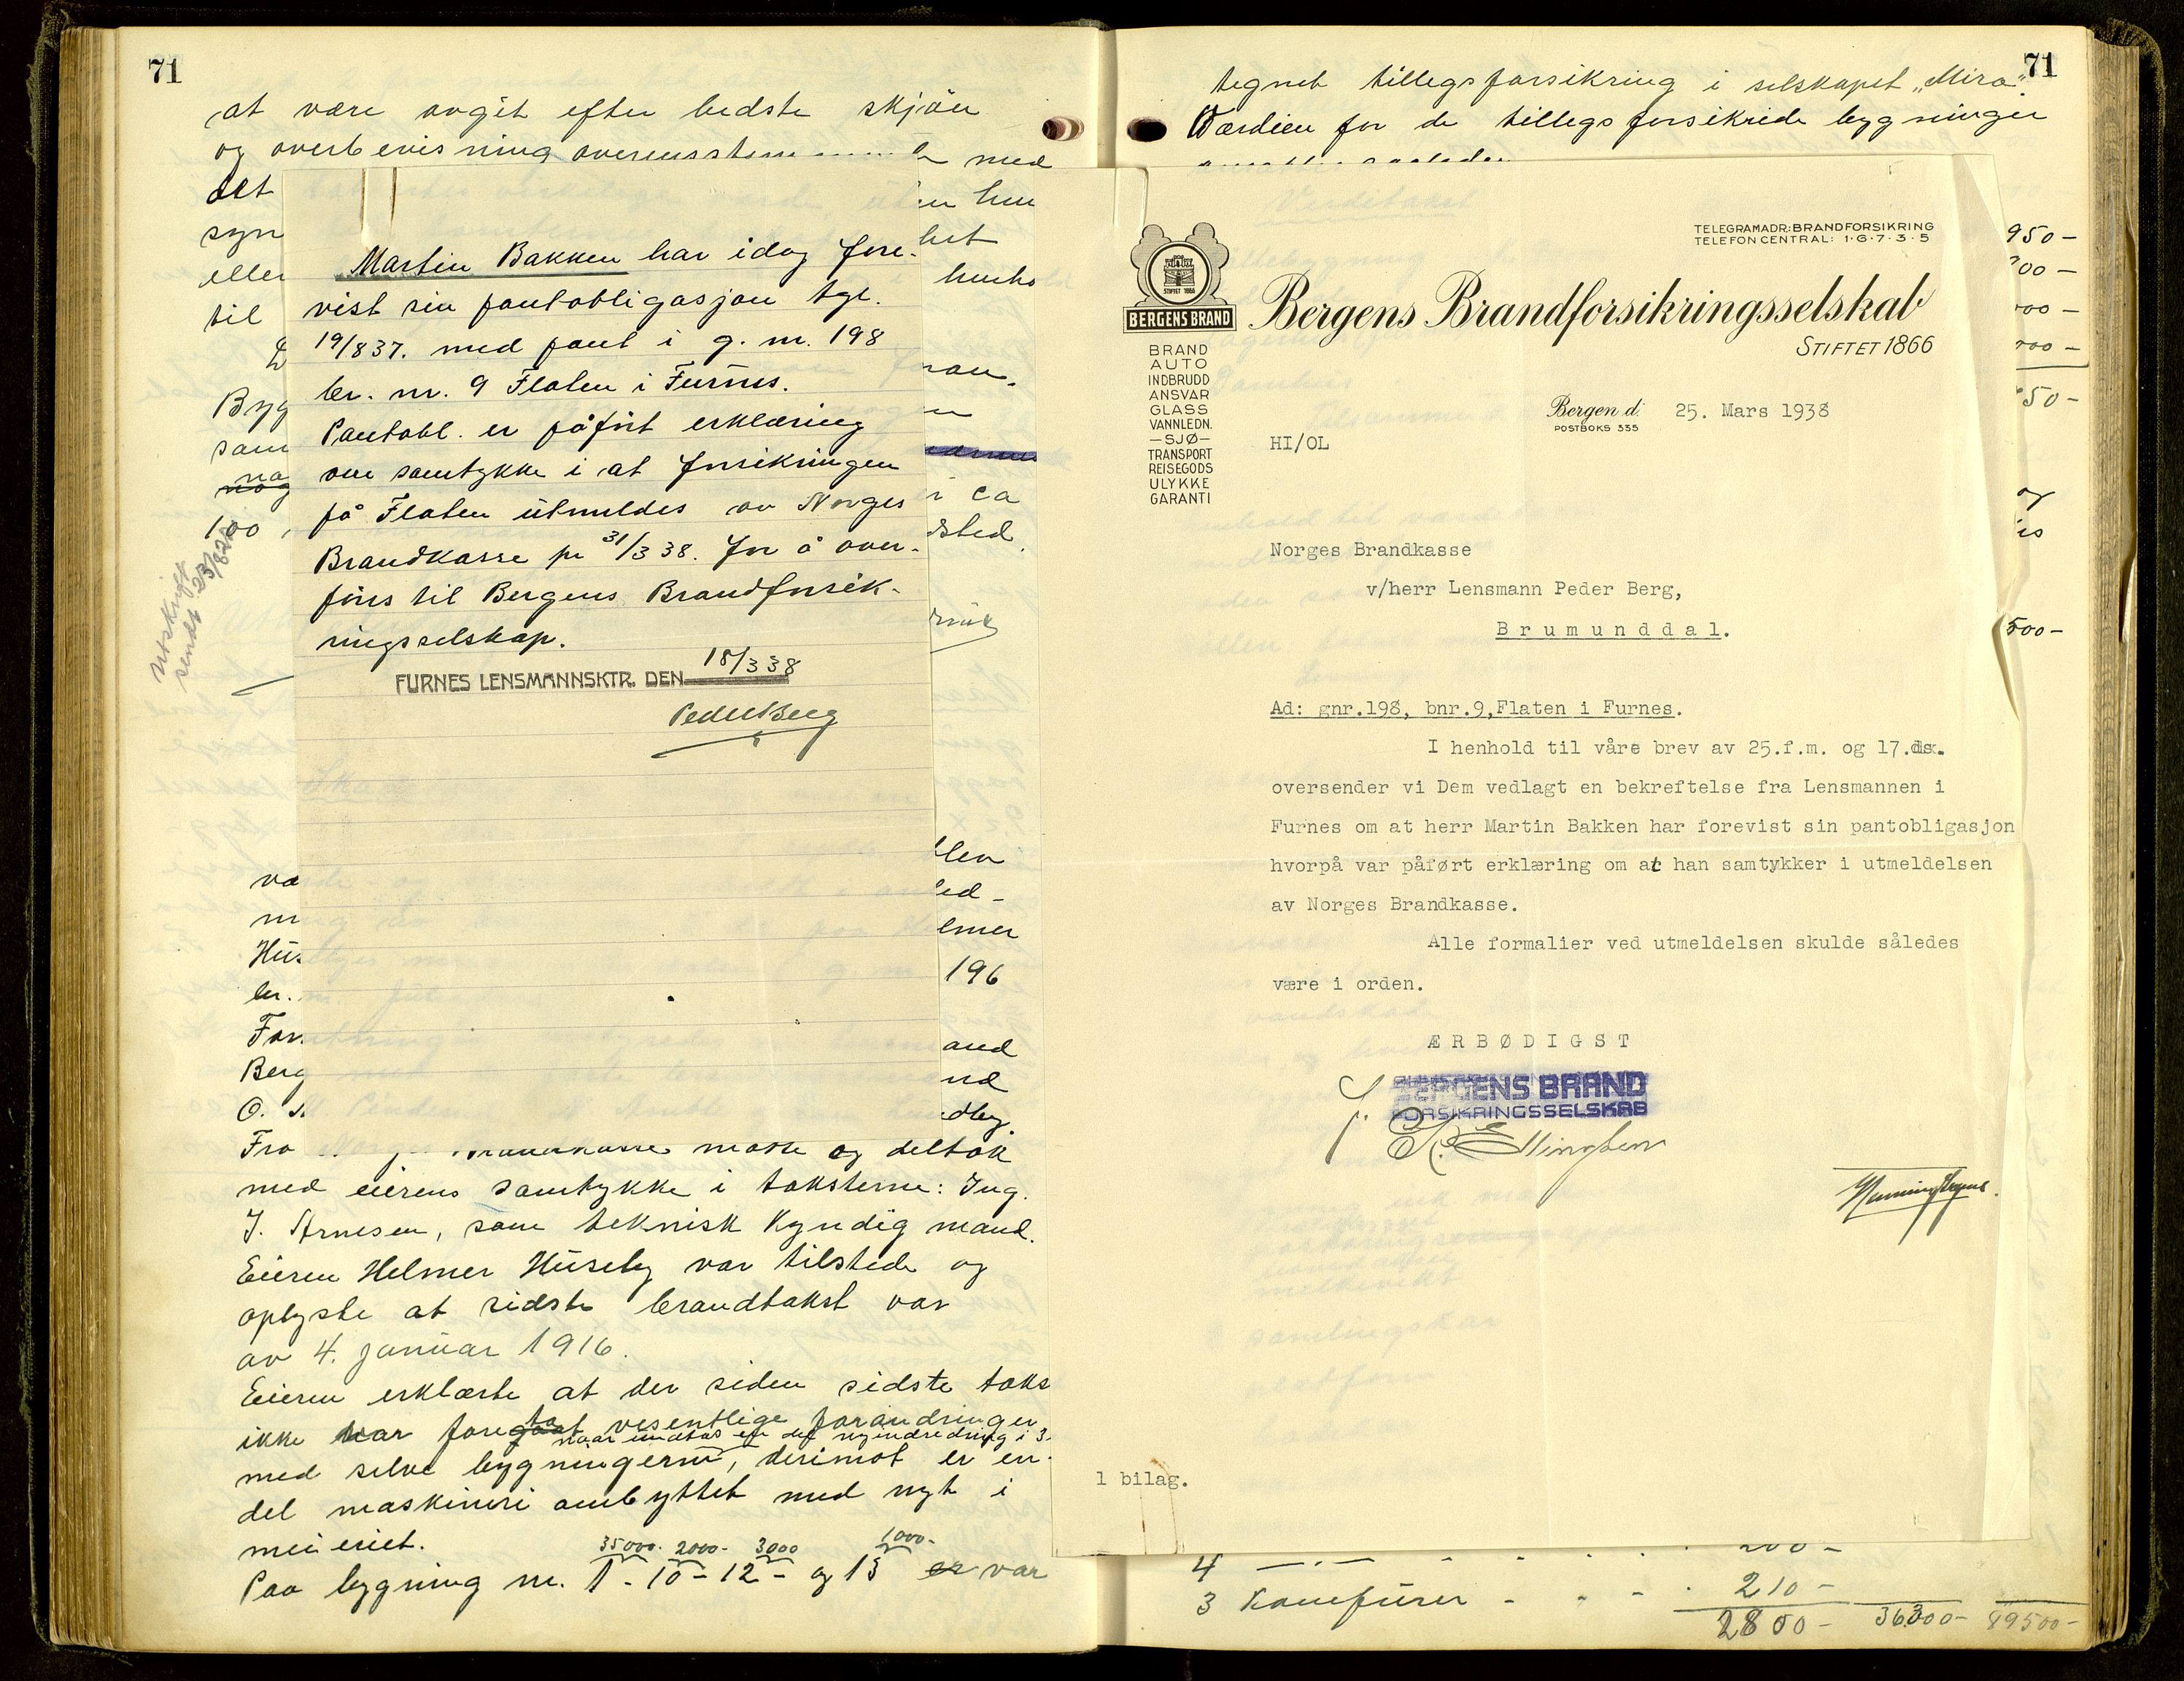 71
at være avgit efter bedste skjön
og overbevisning overensstemmende med
det
syn
eller
til
Byg
sam
100
utskrift
sendt 23/8 28
en hen
het
i ca
dsted
Martin Bakken har idag fore-
vist sin pantobligasjon tgl.
19/8 37. med pant i g. nr. 198
br. nr. 9 Flaten i Furnes.
Pantobl. er påfört erklæring
om samtykke i at forsikringen
på Flaten utmeldes av Norges
Brandkasse pr 31/3 38. for å over-
föres til Bergens Brandforsik-
ringsselskap.
FURNES LENSMANNSKTR. DEN 18/3 38
Peder Berg
blev
ed-
elmer
Hus
br.
196
For
and
Berg
nd
O.
dby.
Fra Norges Brandkasse møtte og deltok
med eierens samtykke i taksterne: Ing.
J. Arnesen, som teknisk kyndig mand.
Eieren Helmer Huseby var tilstede og
oplyste at sidste brandtakst var
av 4. januar 1916.
Eieren erklærte at der siden sidste taks
ikke var foretat vesentlige forandringer
naar undtas en del nyindredning i 3.
med selve bygningerne, derimot er en
del maskineri ombyttet med nyt i
meieriet.
35000. 2000- 3000 1000-
Paa bygning nr. 1 - 10 - 12 - og 13 er var
71
tegnet tillegsforsikring i selskapet „Mira".
Værdien for de tillegsforsikrede bygninger
ansattes saaledes
950-
00-
00-
50-
og
500-
BERGENS BRAND
STIFTET 1866
TELEGRAMADR.: BRANDFORSIKRING
TELEFON CENTRAL: 1·6·7·3·5
Bergens Brandforsikringsselskab
STIFTET 1866
BRAND
AUTO
INDBRUDD
ANSVAR
GLASS
VANNLEDN.
—SJØ—
TRANSPORT
REISEGODS
ULYKKE
GARANTI
Bergen d. 25. Mars 1938
POSTBOKS 335
HI/OL
Norges Brandkasse
v/herr Lensmann Peder Berg,
Brumunddal.
Ad: gnr.198, bnr.9,Flaten i Furnes.
I henhold til våre brev av 25.f.m. og 17.ds.
oversender vi Dem vedlagt en bekreftelse fra Lensmannen i
Furnes om at herr Martin Bakken har forevist sin pantobligasjon
hvorpå var påført erklæring om at han samtykker i utmeldelsen
av Norges Brandkasse.
Alle formalier ved utmeldelsen skulde således
være i orden.
ÆRBØDIGST
BERGENS BRAND
FORSIKRINGSSELSKAB
1 bilag.
4 200-
3 Komfürer - - - 210-
2800- 36300- 89500-